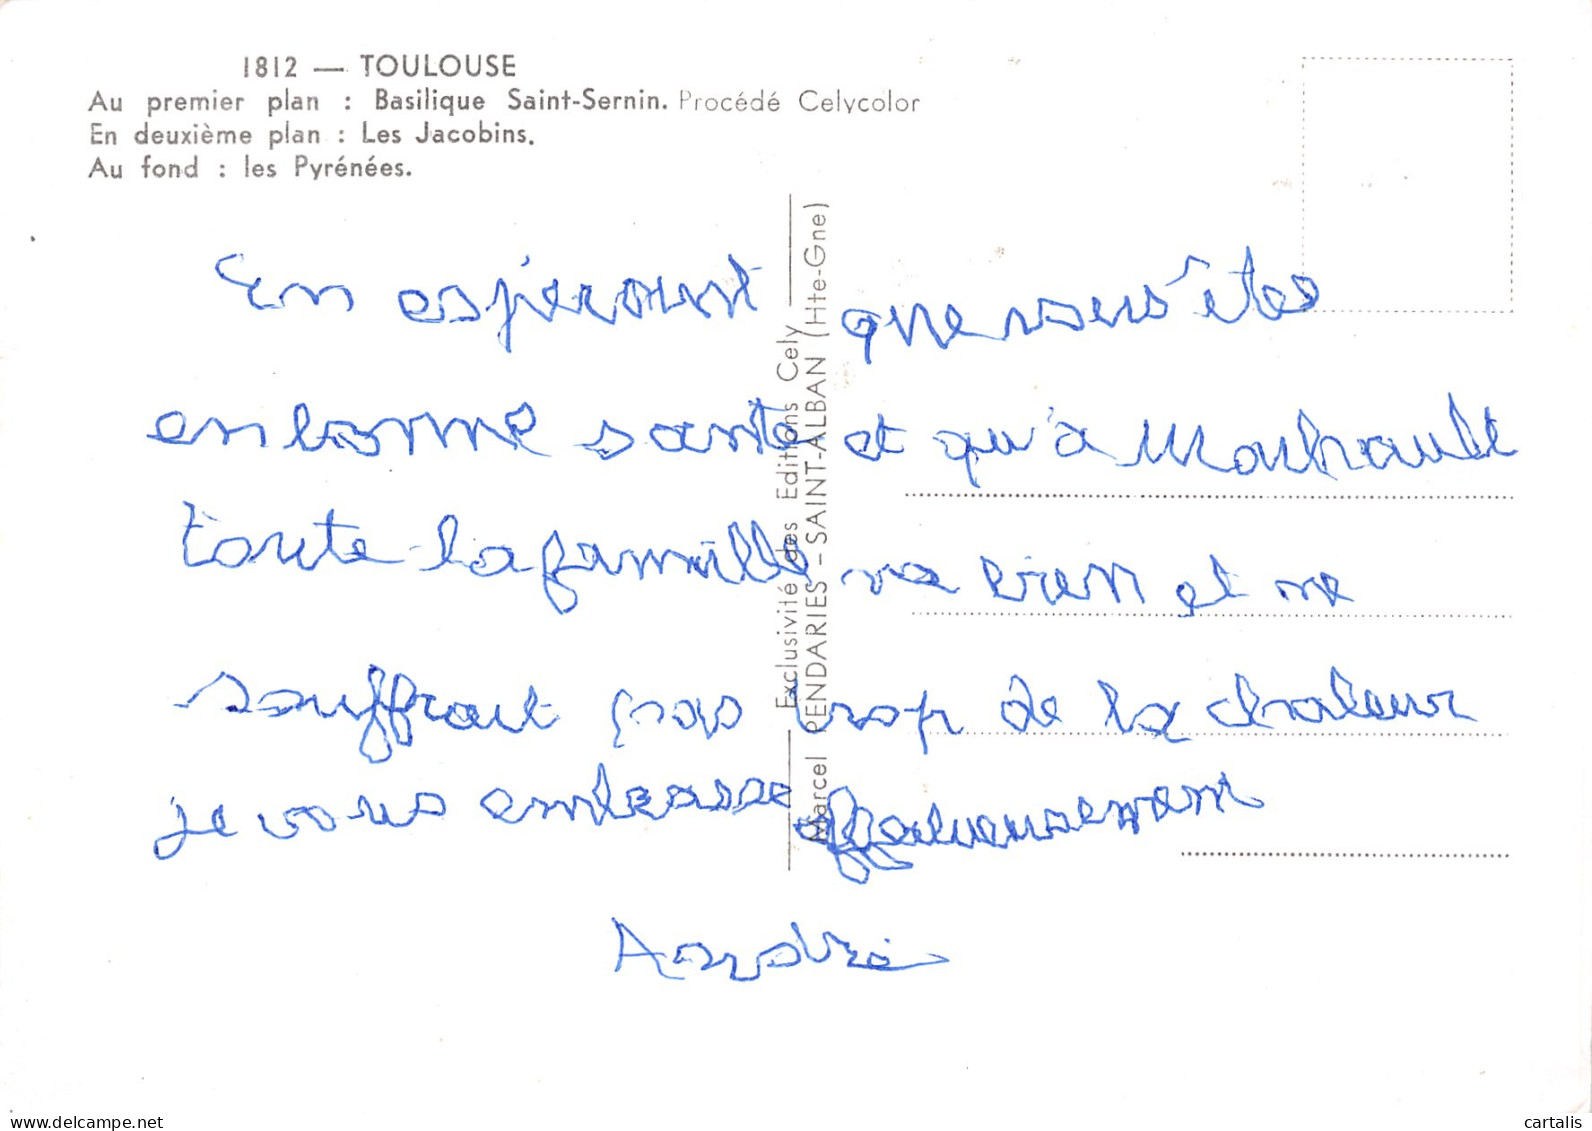 1812 — TOULOUSE
Au premier plan : Basilique Saint-Sernin. Procédé Celycolor
En deuxième plan : Les Jacobins.
Au fond : les Pyrénées.
Exclusivité des Editions Cely
Marcel PENDARIES - SAINT-ALBAN (Hte-Gne)
En espérant que vous êtes
en bonne santé et qu'à
toute la famille va bien et ne
souffrait pas trop de la chaleur
je vous embrasse affectueusement
André
www.delcampe.net
cartalis